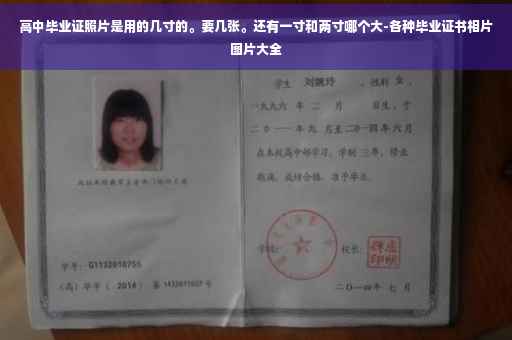 高中毕业证照片是用的几寸的。要几张。还有一寸和两寸哪个大-各种毕业证书相片
图片大全
学生 刘婉玲 ,性别 女 ,
一九九六 年 二 月 日生,于
二〇一一年九 月至二〇一四年 六 月
在本校高中部学习,学制 三年,修业
期满,成绩合格,准予毕业。
学校:
校长:
学号: G1132010755
(高)毕字( 2014 )第 1432011037 号
二〇一四年 七 月